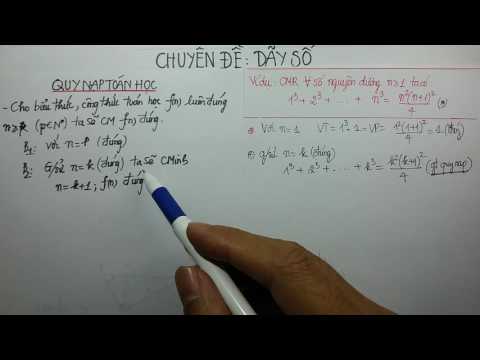 CHUYÊN ĐỀ: DÃY SỐ
QUY NẠP TOÁN HỌC
- Cho biểu thức, công thức toán học f(n) luôn đúng
n≥p (p∈N*) ta sẽ CM f(n) đúng.
B1: với n=p (đúng)
B2: G/sử n=k (đúng) ta sẽ CMinh
n=k+1; f(n) đúng
Ví dụ: CMR ∀ số nguyên dương n≥1 ta có
1³+2³+...+n³=n²(n+1)²/4
Với n=1 VT=1³=1=VP=1²(1+1)²/4=1.(đúng)
g/sử n=k (đúng)
1³+2³+...+k³=k²(k+1)²/4 (gt quy nạp)